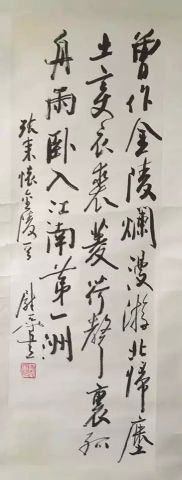 曾作金陵爛漫游北歸塵
土变衣裘菱荷聲裏孤
舟雨卧入江南第一洲
张耒懷金陵一首